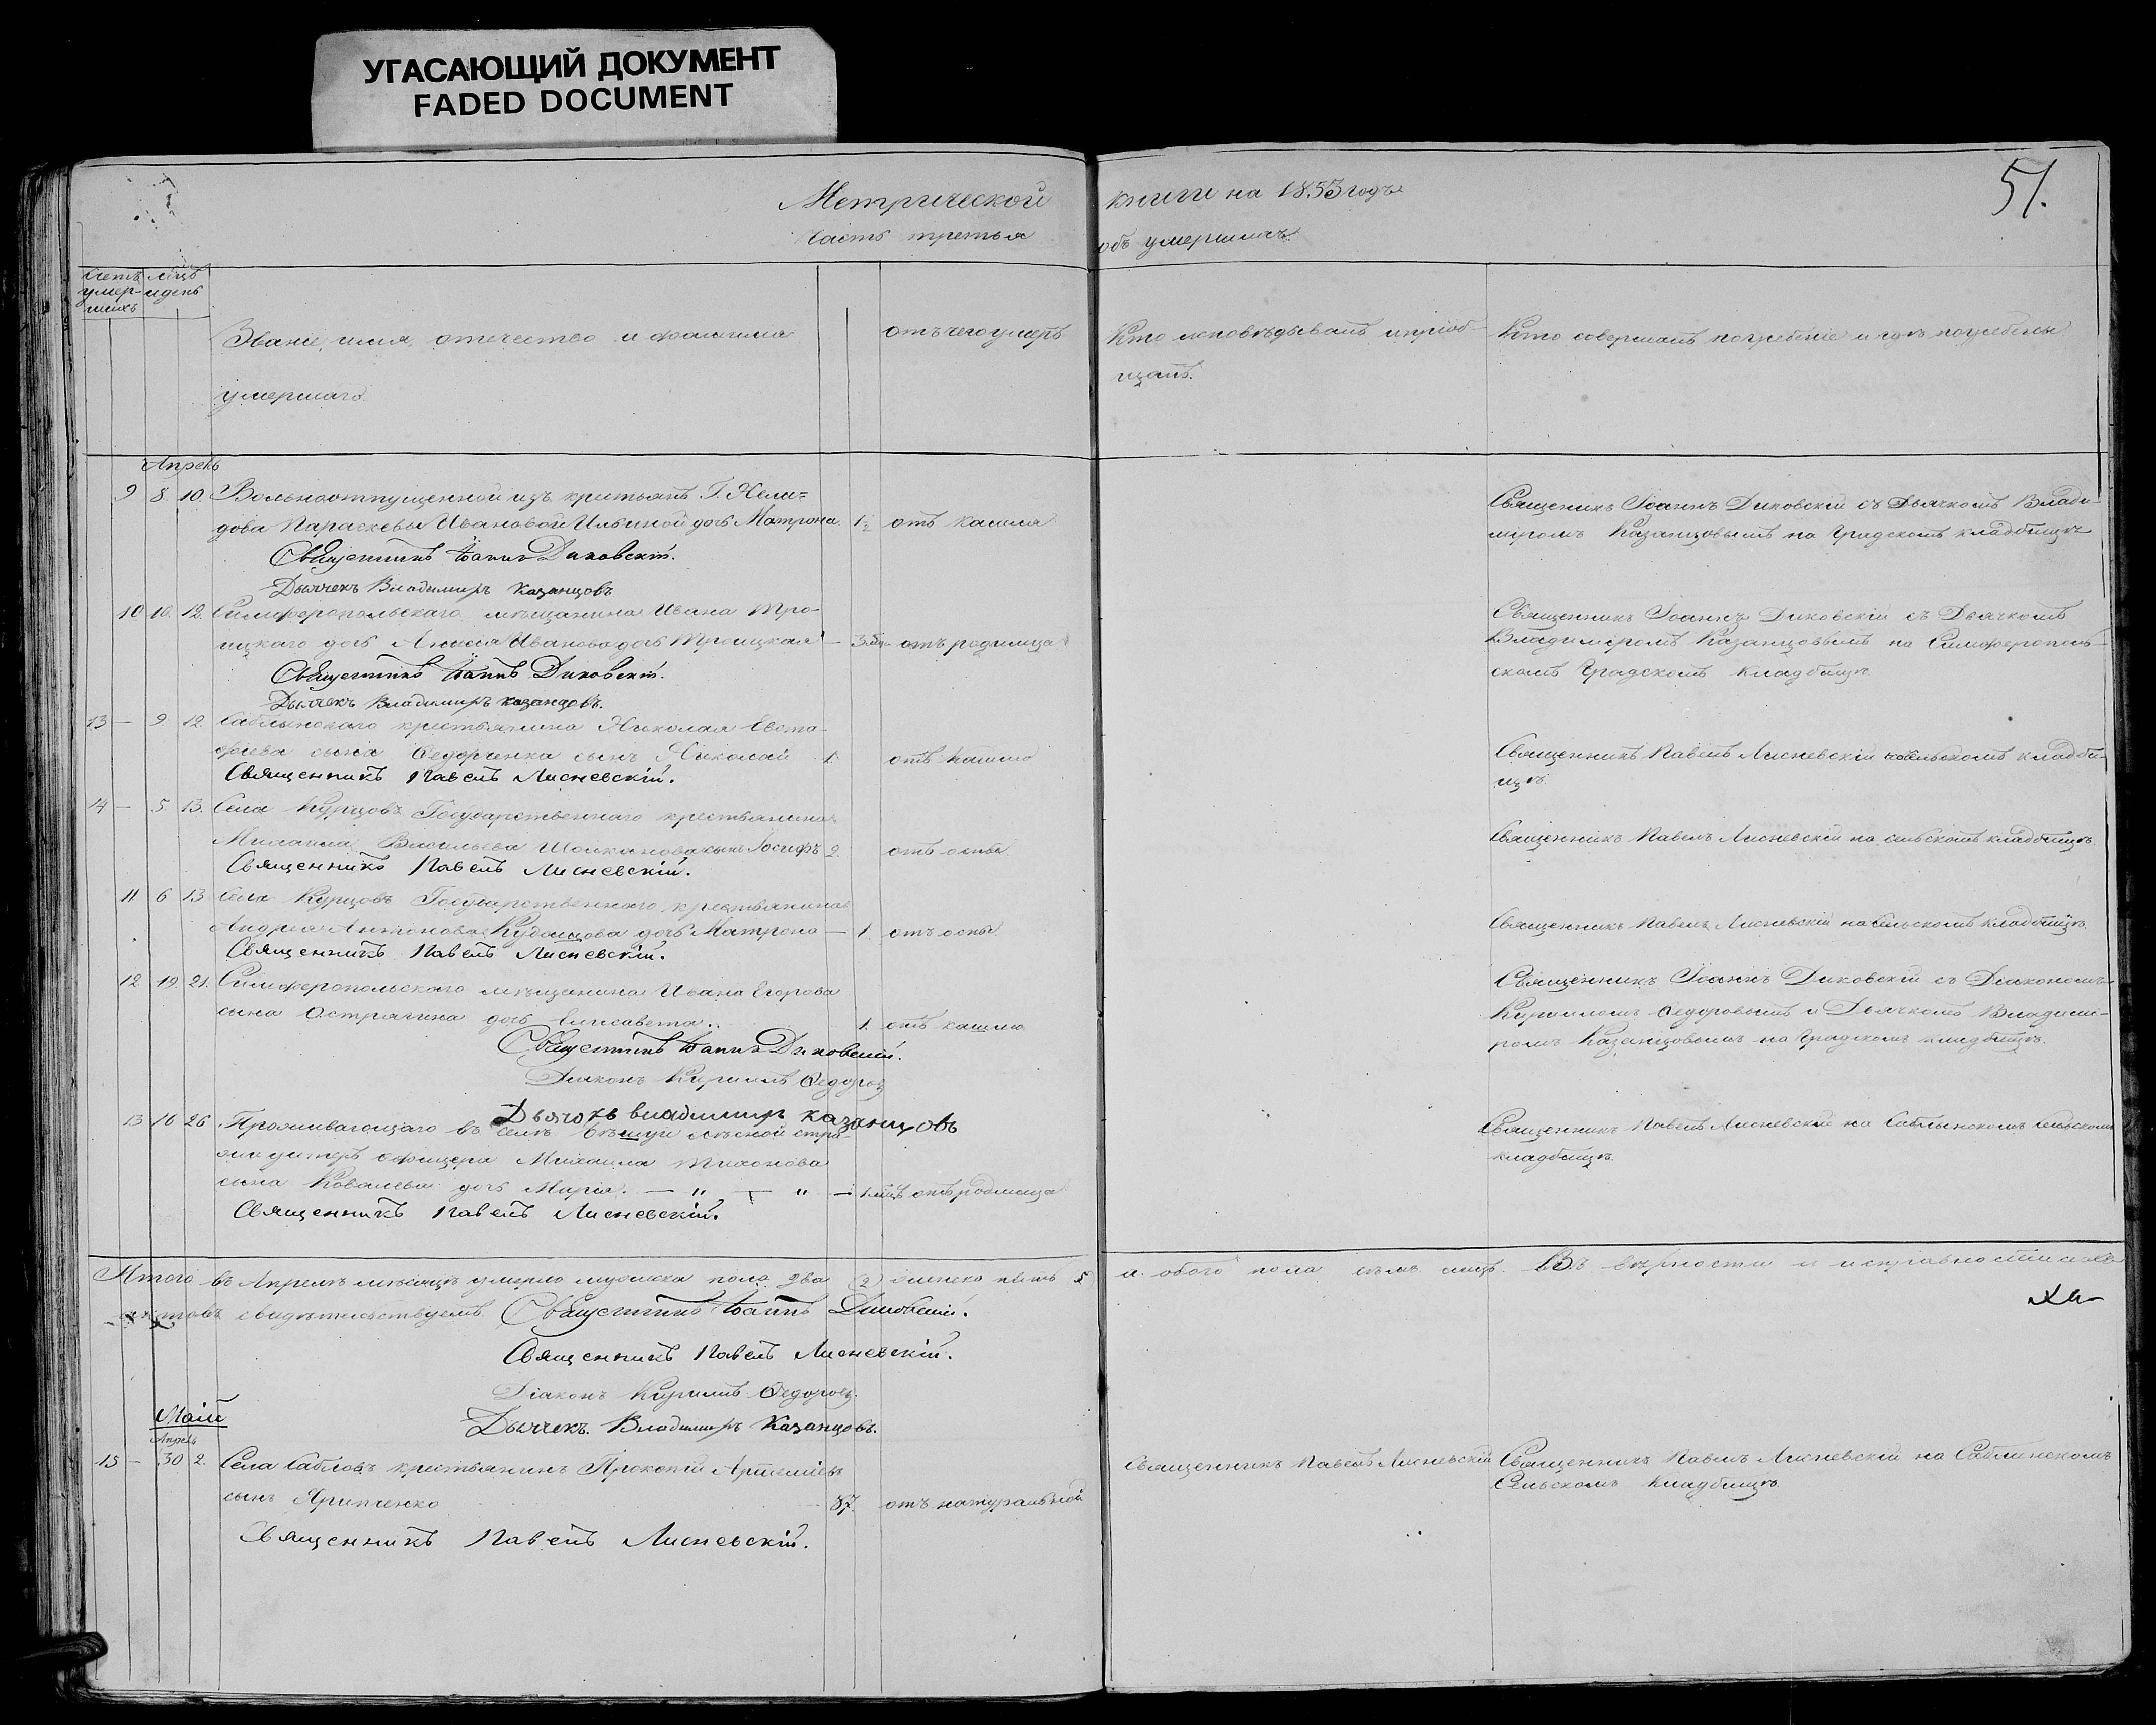 УГАСАЮЩИЙ ДОКУМЕНТ
FADED DOCUMENT
51.
Метрической книги на 1853 годъ
Часть третья объ умершихъ.
Счетъ умершихъ
мѣцъ и день
Званіе, имя, отечество и фамилія
умершаго
отъ чего умеръ
Кто исповѣдывалъ и пріоб-
щалъ.
Кто совершалъ погребеніе и гдѣ погребены
Апрель
9 8. 10. Вольноотпущенной изъ крестьянъ Г. Нели=
дова Параскевы Ивановой Ильиной дочь Матрона 1½ отъ кашля
Священникъ Іоаннъ Диковскій съ Дьячкомъ Влади-
міромъ Казанцовымъ на Градскомъ кладбищѣ
Священникъ Іоаннъ Диковскій.
Дьячекъ Владимиръ Казанцовъ
10 10. 12. Симферопольскаго мѣщанина Ивана Тро-
ицкаго дочь Иванова дочь Троицкая — 3 отъ родимца
Священникъ Іоаннъ Диковскій съ Дьячкомъ
Владиміромъ Казанцовымъ на Симферополь-
скомъ Градскомъ Кладбищѣ
Священникъ Іоаннъ Диковскій.
Дьячекъ Владимиръ Казанцовъ.
13 — 9. 12. Саблынскаго крестьянина Николая Евста-
фьева сына Федоренка сынъ Николай 1. отъ кашлю
Священникъ Павелъ Лисневскій на сельскомъ кладби-
щѣ.
Священникъ Павелъ Лисневскій.
14 — 5. 13. Села Курцовъ Государственнаго крестьянина
Михаила Васильева сынъ Іосифъ 2. отъ оспы
Священникъ Павелъ Лисневскій на сельскомъ кладбищѣ.
Священникъ Павелъ Лисневскій.
11 6 13 Села Курцовъ Государственнаго крестьянина
Андрея Антонова дочь Матрона — 1. отъ оспы
Священникъ Павелъ Лисневскій на сельскомъ кладбищѣ.
Священникъ Павелъ Лисневскій.
12 19. 21. Симферопольскаго мѣщанина Ивана Егорова
сына Острягина дочь Елисавета.. 1. отъ кашлю
Священникъ Іоаннъ Диковскій съ Діакономъ
Кирилломъ Федоровымъ и Дьячкомъ Владимі-
ромъ Казанцовымъ на Градскомъ кладбищѣ.
Священникъ Іоаннъ Диковскій.
Діаконъ Кирилъ Федоровъ
Дьячокъ владимиръ казанцовъ
13 16 26. Проживающаго въ селѣ лѣсной стра-
жи унтеръ офицера Михаила Тихонова
сына Ковалева дочь Марія. — " — " — 1. мѣцъ отъ родимца
Священникъ Павелъ Лисневскій на Саблынскомъ Сельскомъ
кладбищѣ.
Священникъ Павелъ Лисневскій.
Итого въ Апрелѣ мѣсяцѣ умерло мужеска пола два (2) женско пять 5
а обоего пола семь лицъ. Въ вѣрности и исправности сихъ
актовъ свидѣтельствуемъ. Священникъ Іоаннъ Диковскій.
Священникъ Павелъ Лисневскій.
Діаконъ Кирилъ Федоровъ.
Дьячекъ. Владимиръ Казанцовъ.
Маій
Апрель
15 — 30 2. Села Сабловъ крестьянинъ Прокопій Артеміевъ
сынъ Ярипченко 87. отъ натуральной
Священникъ Павелъ Лисневскій
Священникъ Павелъ Лисневскій на Саблинскомъ
Сельскомъ Кладбищѣ.
Священникъ Павелъ Лисневскій.